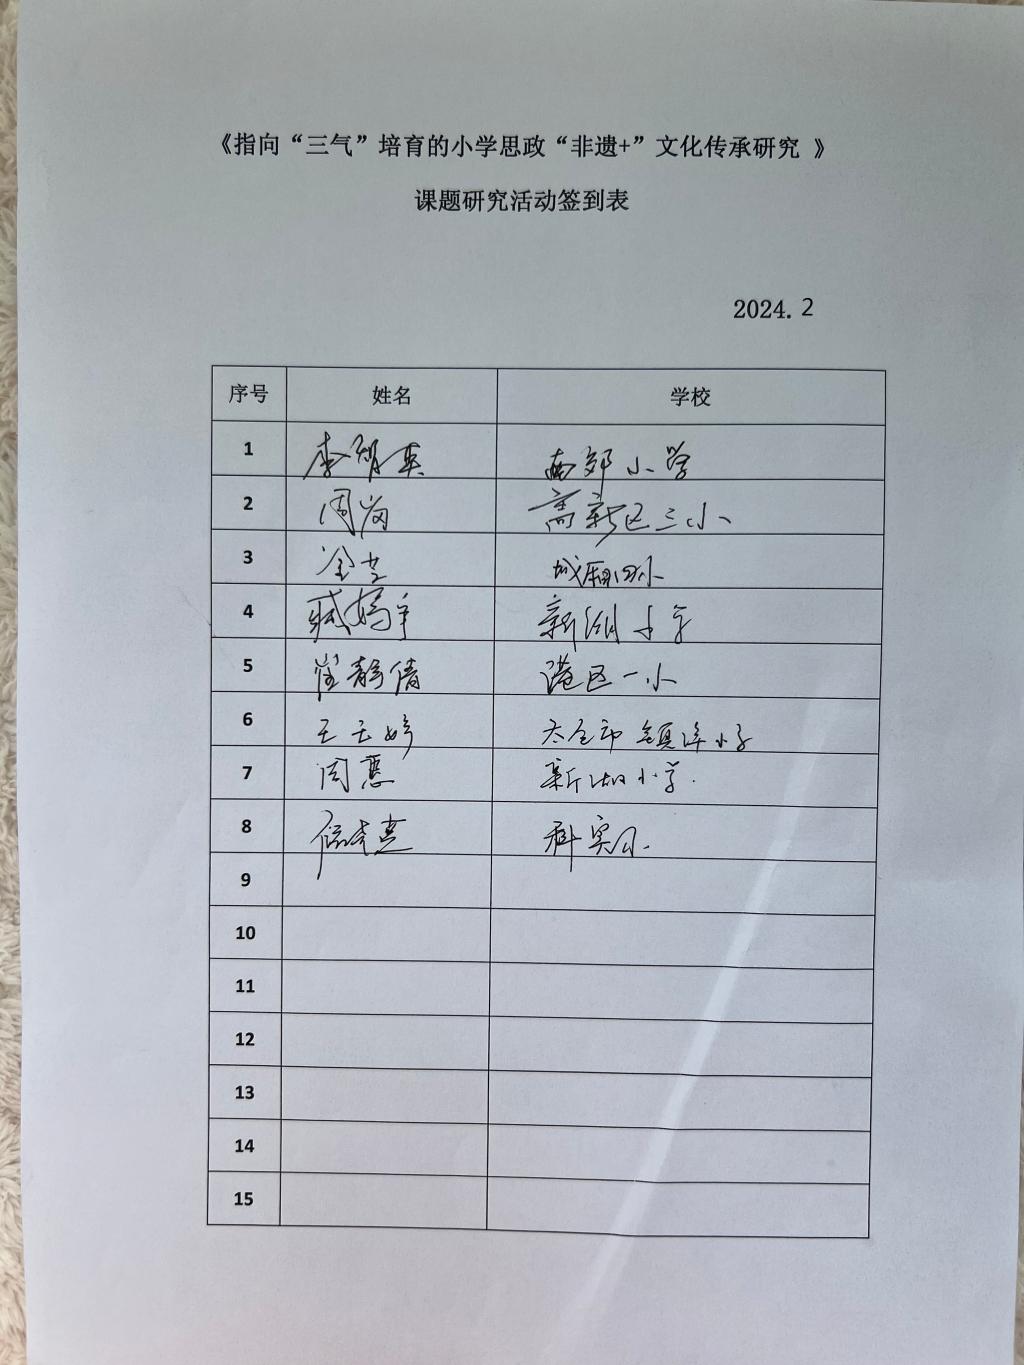 《指向“三气”培育的小学思政“非遗+”文化传承研究 》
课题研究活动签到表
2024. 2
序号 姓名 学校
1 李明英 南郊小学
2 周岗 高新区三小
3 金芝 城厢四小
4 臧嫣宇 新湖小学
5 崔静倩 港区一小
6 王云婷 太仓市 镇洋小学
7 周惠 新湖小学.
8 科实小.
9
10
11
12
13
14
15